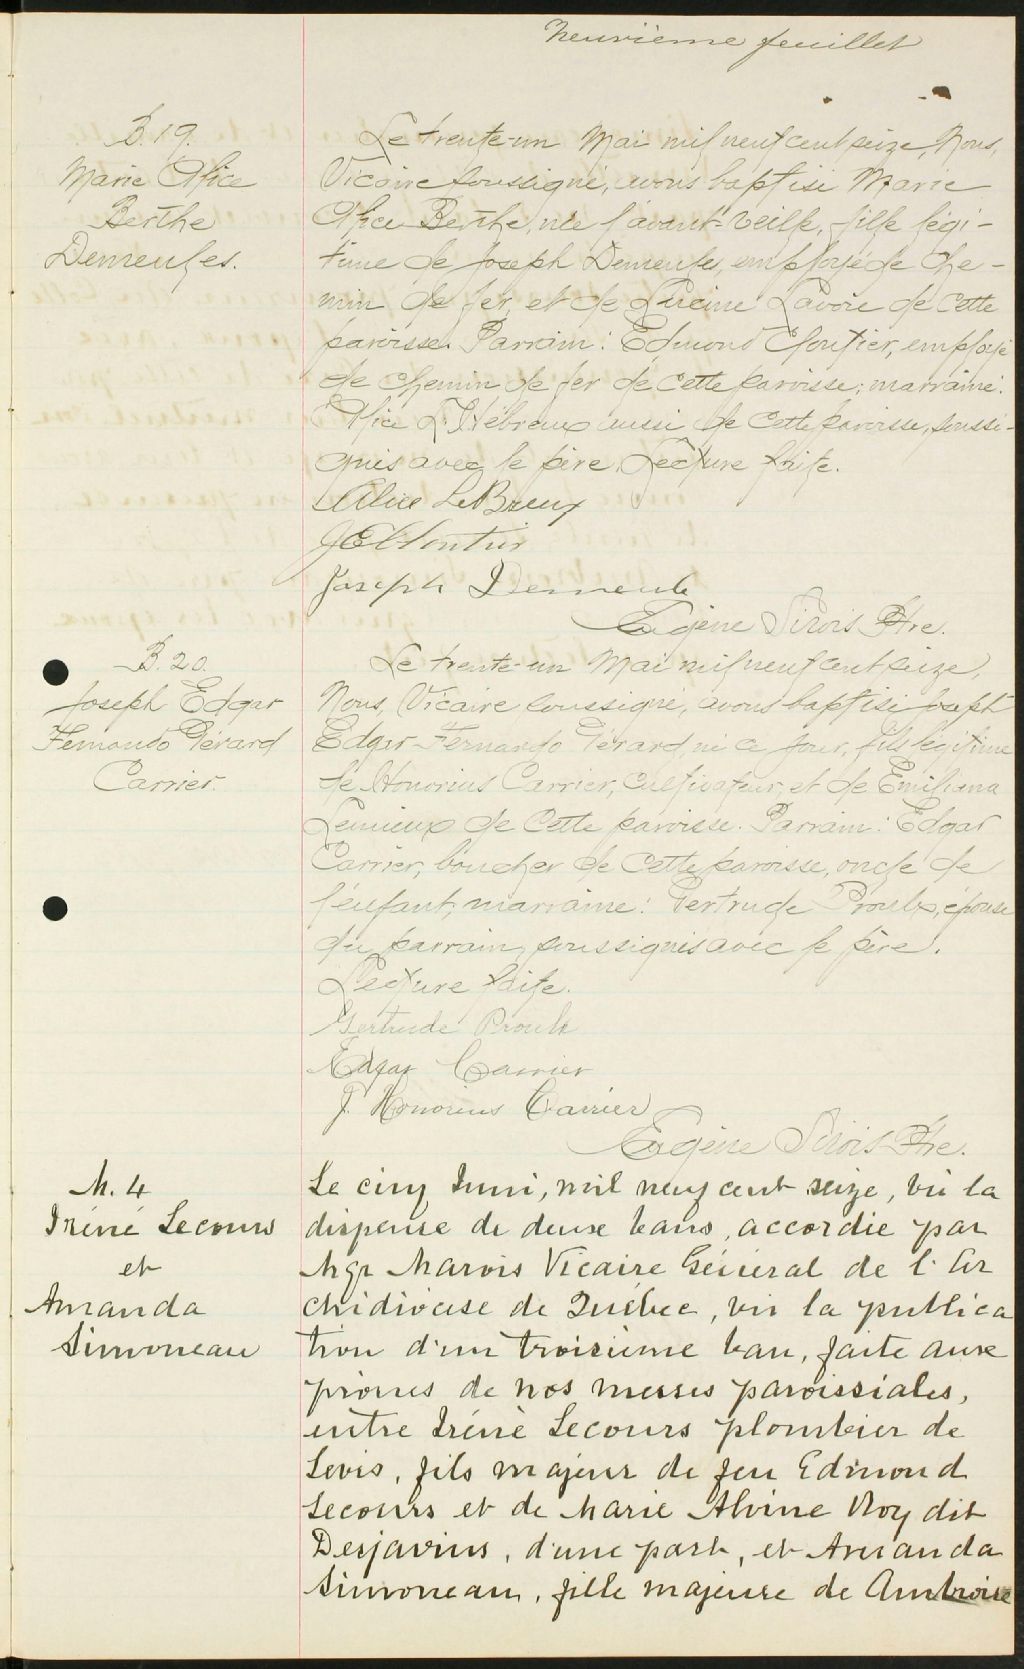 Neuvième feuillet
B. 19.
Marie Alice
Berthe
Demeules.
Le trente-un Mai mil neuf cent seize, Nous,
Vicaire soussigné, avons baptisé Marie
Alice Berthe, née l'avant-veille, fille légi-
time de Joseph Demeules, employé de che-
min de fer, et de Lucine Lavoie de cette
paroisse. Parrain: Edmond Cloutier, employé
de chemin de fer de cette paroisse; marraine:
Alice L'Hébreux aussi de cette paroisse, soussi-
gnés avec le père. Lecture faite.
Alice LeBreux
JECloutier
Joseph Demeule
Eugène Sirois Ptre.
B. 20.
Joseph Edgar
Fernando Gérard
Carrier.
Le trente-un Mai mil neuf cent seize,
Nous, Vicaire soussigné, avons baptisé Joseph
Edgar Fernando Gérard, né ce jour, fils légitime
de Honorius Carrier, cultivateur, et de Emiliana
Lemieux de cette paroisse. Parrain: Edgar
Carrier, boucher de cette paroisse, oncle de
l'enfant; marraine: Gertrude Proulx, épouse
du parrain, soussignés avec le père.
Lecture faite.
Gertrude Proulx
Edgar Carrier
J. Honorius Carrier
Eugène Sirois Ptre.
M. 4
Iréné Lecours
et
Amanda
Simoneau
Le cinq Juin, mil neuf cent seize, vu la
dispense de deux bans, accordée par
Mgr Marois Vicaire Général de l'Ar
chidiocèse de Québec, vu la publica
tion d'un troisième ban, faite aux
prônes de nos messes paroissiales,
entre Iréné Lecours plombier de
Levis, fils majeur de feu Edmond
Lecours et de Marie Alvine Roy dit
Desjardins, d'une part, et Amanda
Simoneau, fille majeure de Ambroise